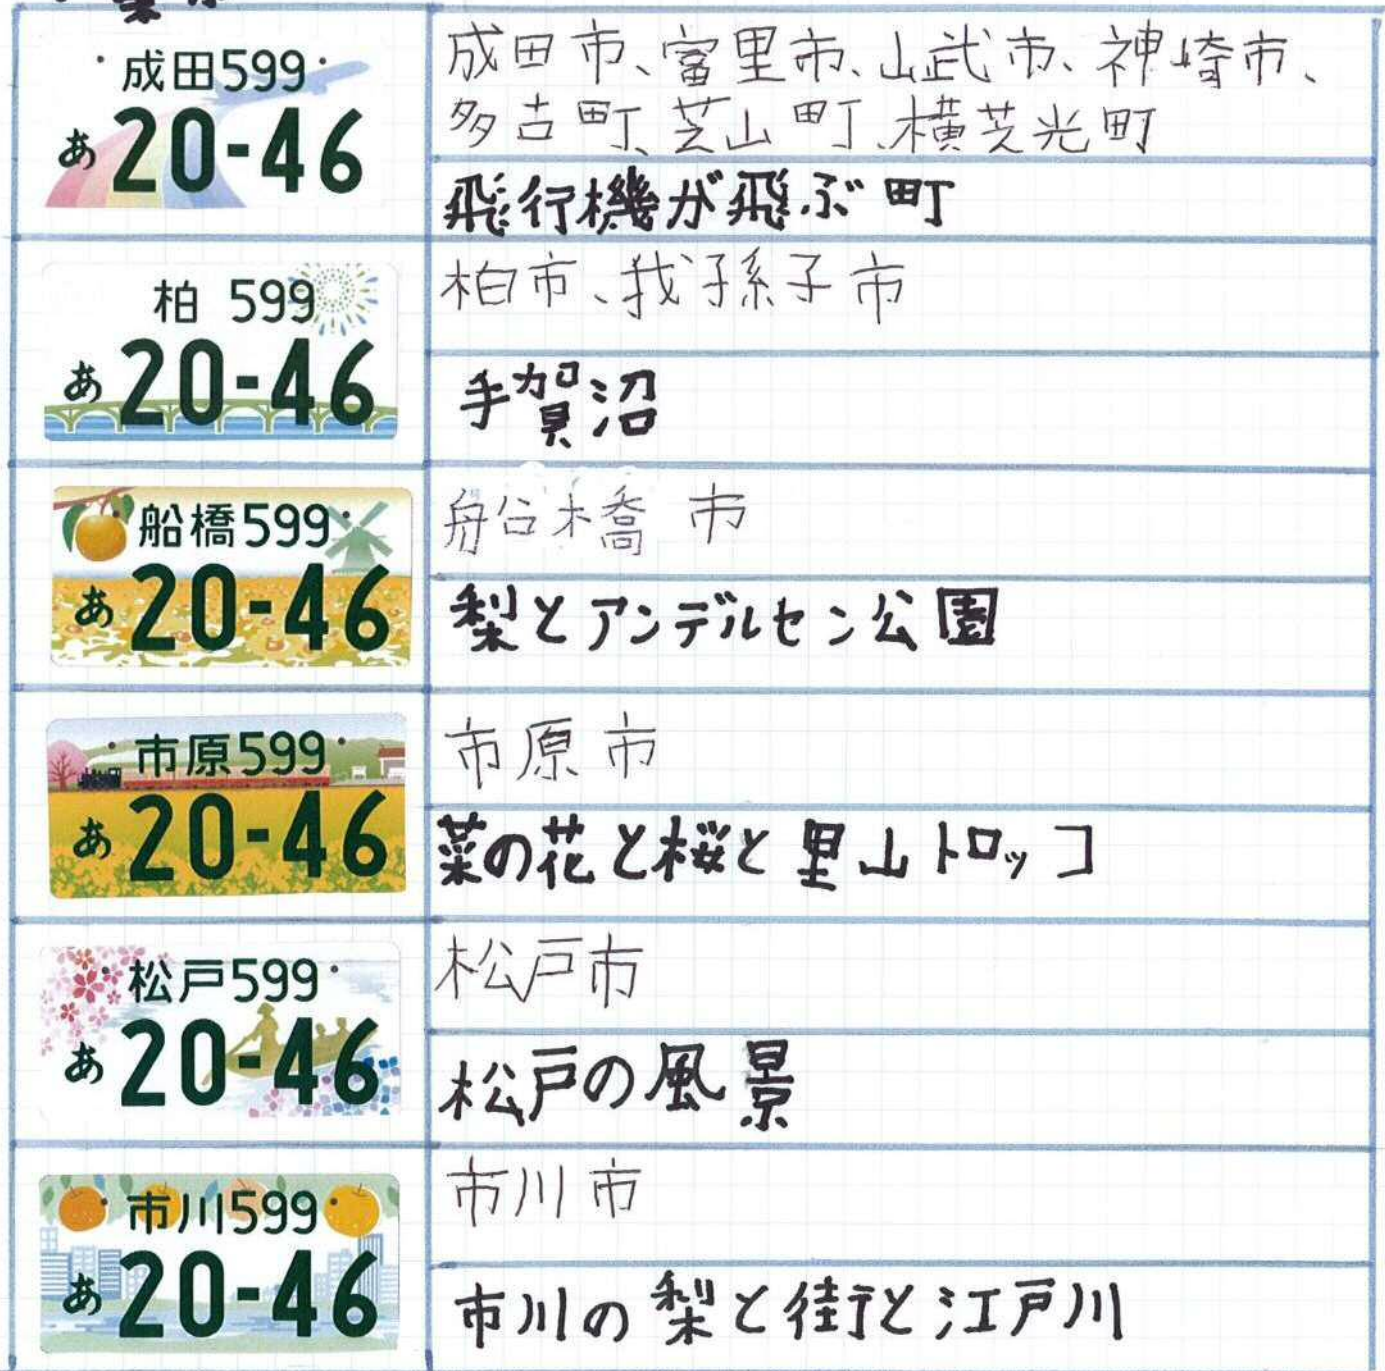 成田599
あ 20-46
成田市、富里市、山武市、神崎市、
多古町、芝山町、横芝光町
飛行機が飛ぶ町
柏 599
あ 20-46
柏市、我孫子市
手賀沼
船橋599
あ 20-46
船橋市
梨とアンデルセン公園
市原599
あ 20-46
市原市
菜の花と桜と里山トロッコ
松戸599
あ 20-46
松戸市
松戸の風景
市川599
あ 20-46
市川市
市川の梨と街と江戸川